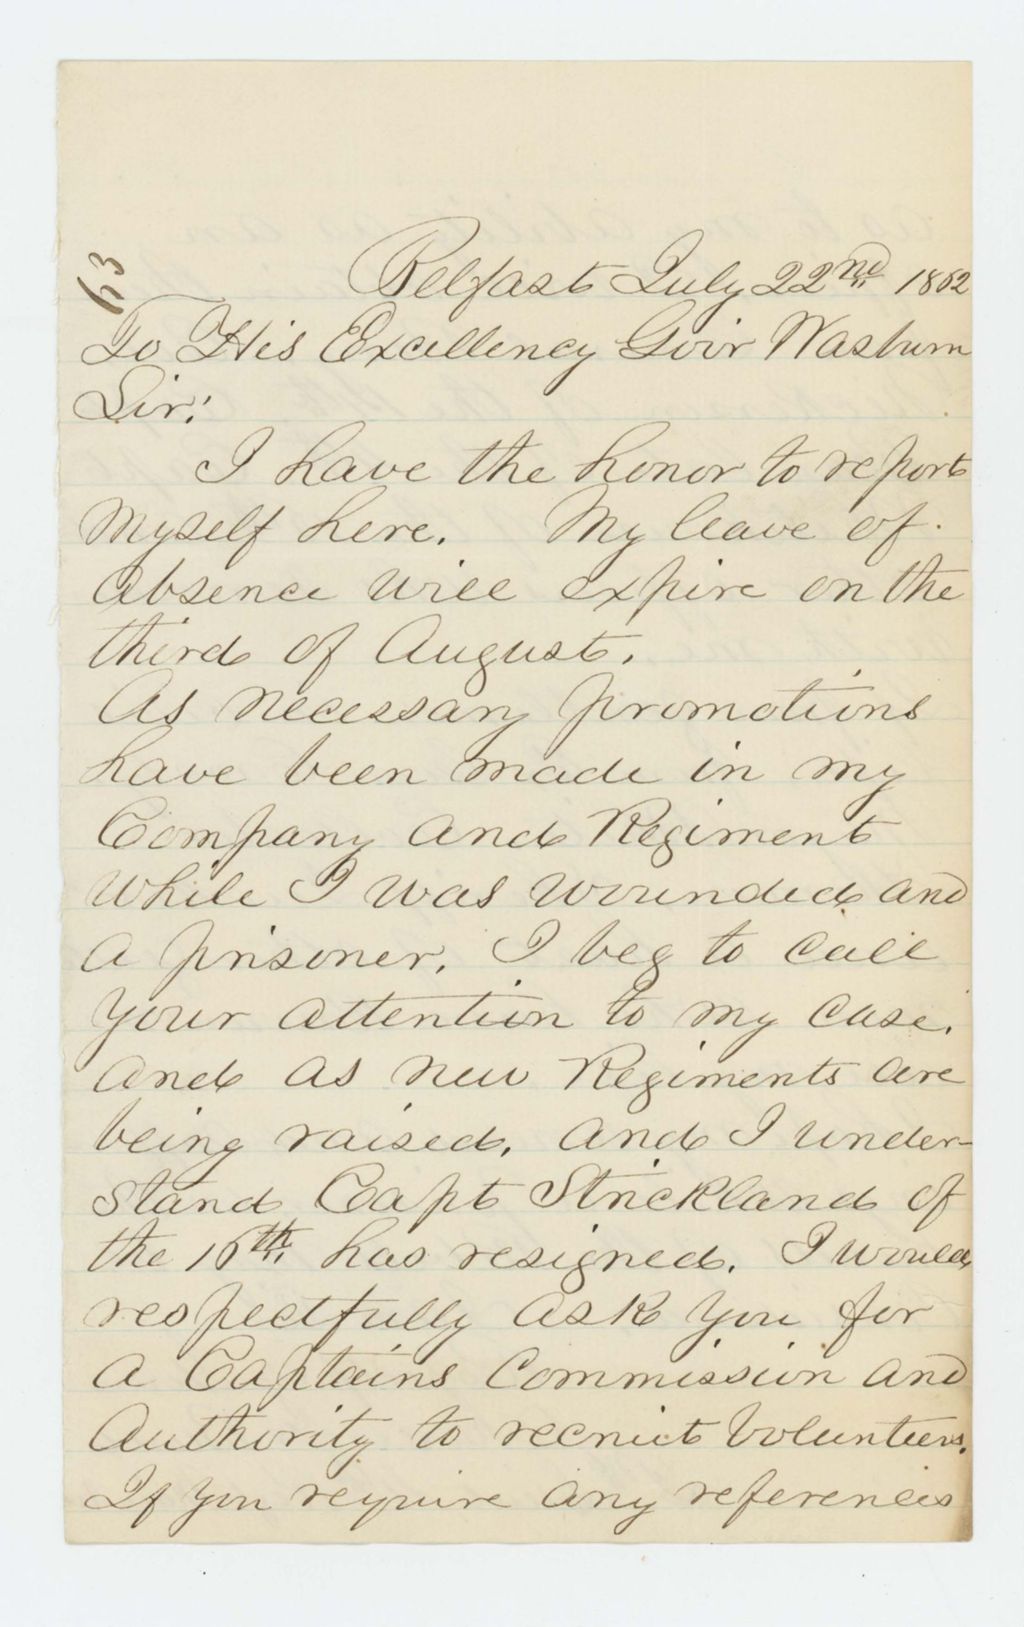 63
Belfast July 22nd 1862
To His Excellency Govr Wasburn
Sir!
I have the honor to report
myself here. My leave of
absence will expire on the
third of August.
As necessary promotions
have been made in my
Company and Regiment
while I was wounded and
a prisoner, I beg to call
your attention to my case.
And as new Regiments are
being raised, and I under-
stand Capt Strickland of
the 16th has resigned. I would
respectfully ask you for
a Captains Commission and
Authority to recruit Volunteers.
If you require any references